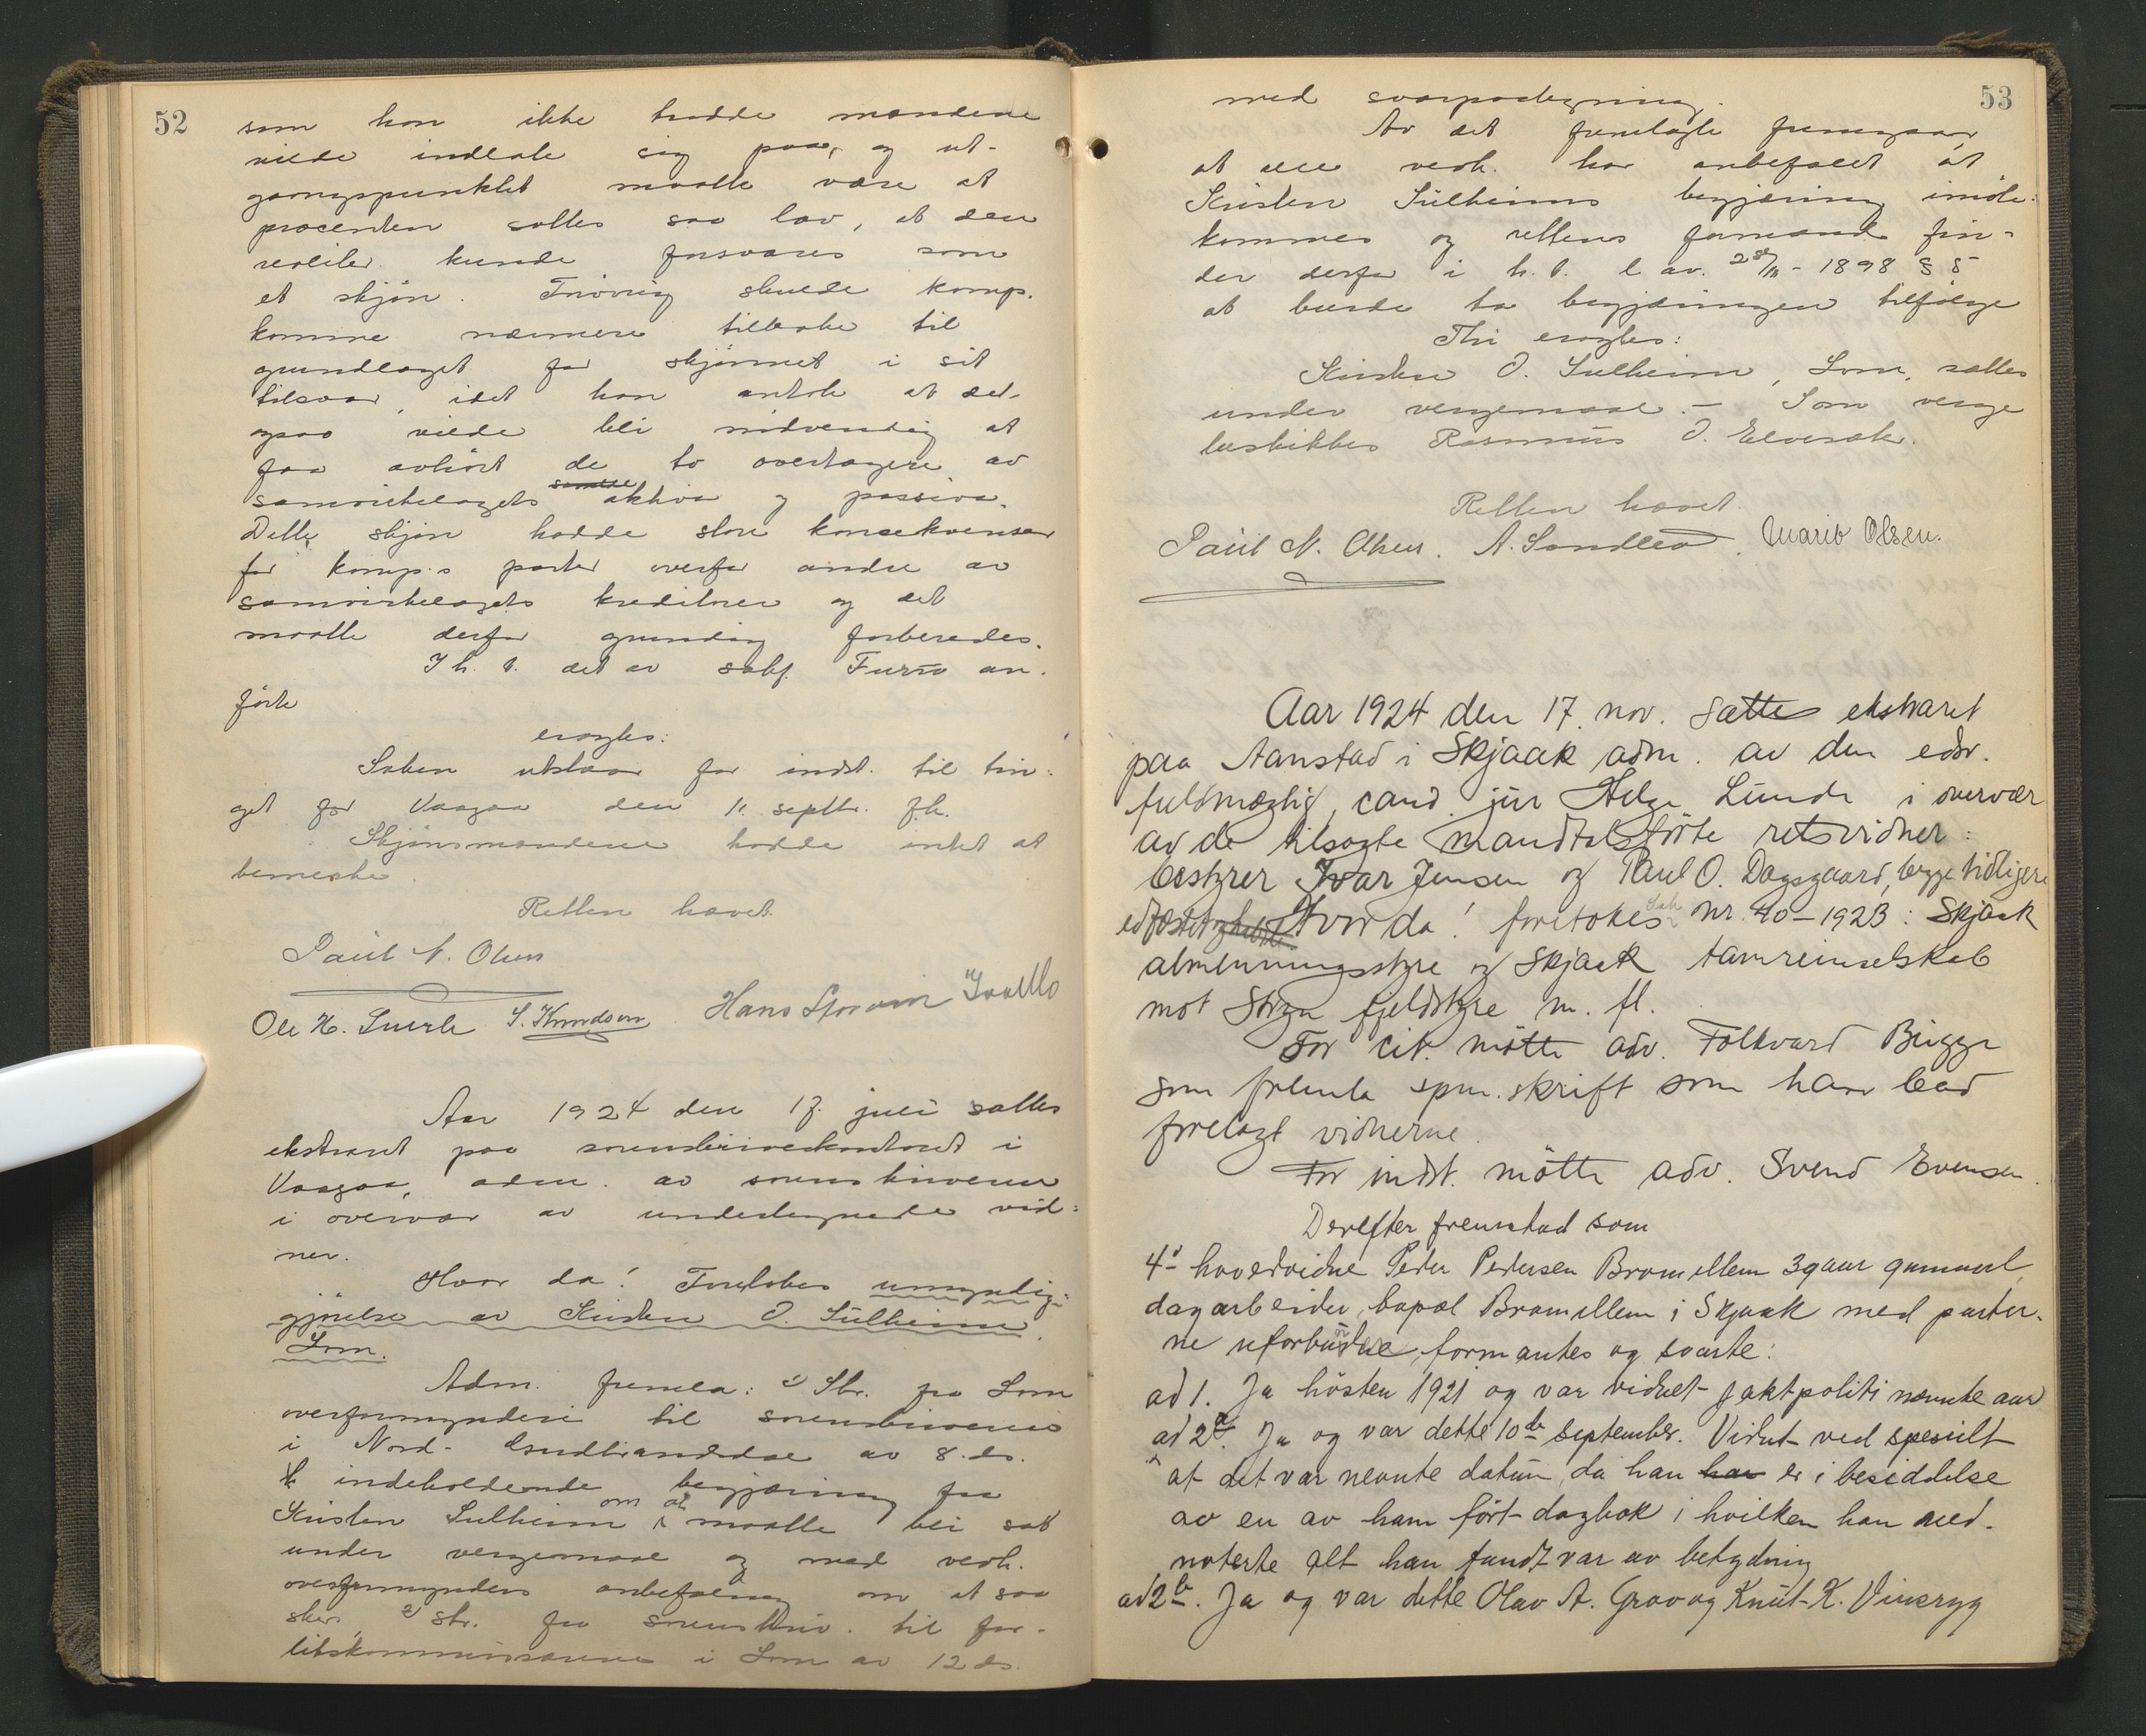 52
som han ikke trodde mændene
vilde indlate sig paa, og ut-
gangspunktet maatte være at
procenten sattes saa lav, at den
realiter kunde forsvares som
et skjøn. Forøvrig skulde komp.
komme nærmere tilbake til
grundlaget for skjønnet i sit
tilsvar, idet han antok at det-
ogsaa vilde bli nødvendig at
faa avhørt de to overtagere av
samvirkelagets aktiva og passiva.
Dette skjøn hadde store konsekvenser
for komp.s parter overfor andre av
samvirkelagets kreditorer og det
maatte derfor grundig forberedes.
I h. t. det av sakf. Furu an-
førte
eragtes:
Saken utstaar for indst. til tin-
get for Vaagaa den 11. septbr. f.k.
Skjønsmændene hadde intet at
bemerke.
Retten hævet.
Paul N. Olsen
Ole H. S. Knudsen Hans
Aar 1924 den 17. juli sattes
ekstraret paa sorenskriverkontoret i
Vaagaa, adm. av sorenskriveren
i overvær av undertegnede vid-
ner.
Hvor da! Foretokes umyndig-
gjørelse av Kristen O. Sulheim,
Lom.
Adm. fremla: 1) Skr. fra Lom
overformynderi til sorenskriveren
i Nord-Gudbrandsdal av 8. ds.
indeholdende begjæring fra
Kristen Sulheim om at maatte bli sat
under vergemaal og med vedk.
overformynders anbefaling om at saa
sker, 2) skr. fra sorenskriv. til for-
likskommissærene i Lom av 12 ds.
53
med svarpaategning.
Av det fremlagte fremgaar
at alle vedk. har anbefalet at
Kristen Sulheims begjæring imøte-
kommes og rettens formand fin-
der derfor i h. t. lav. 28/11-1898 § 5
at burde ta begjæringen tilfølge
Thi eragtes:
Kristen O. Sulheim, Lom, sættes
under vergemaal. – Som verge
beskikkes Rasmus O. Elvesæter.
Retten hævet.
Paul N. Olsen. A. Sandlev. Marit Olsen.
Aar 1924 den 17. nov. sattes ekstraret
paa Aanstad i Skjaak adm. av den edsv.
fuldmægtig, cand. jur Helge Lunde i overvær
av de tilsagte mandtalsførte retsvidner:
bestyrer Ivar Jensen og Paul O. Dagsgaard, begge tidligere
edfæstet Hvor da! foretokes sak nr. 40-1923: Skjaak
almenningsstyre og Skjaak tamreinselskab
mot Stryn fjeldstyre m. fl.
For cit. møtte adv. Folkvard Bugge
som fremla spm. skrift som han bad
forelagt vidnerne.
For indst. møtte adv. Svend Evensen.
Derefter fremstod som
4de hovedvidne Peder Pedersen Bramillem 39 aar gammel,
dagarbeider, bopæl Bramillem i Skjaak med parter-
ne uforbunden, formantes og svarte:
ad 1. Ja høsten 1921 og var vidnet jaktpoliti nævnte aar
ad 2a. Ja og var dette 10de september. Vidnet ved spesielt
at det var nevnte datum, da han har er i besiddelse
av en av ham ført dagbok i hvilken han ned-
noterte alt han fandt var av betydning
ad 2b. Ja og var dette Olav A. Grov og Knut K. Vinsryg